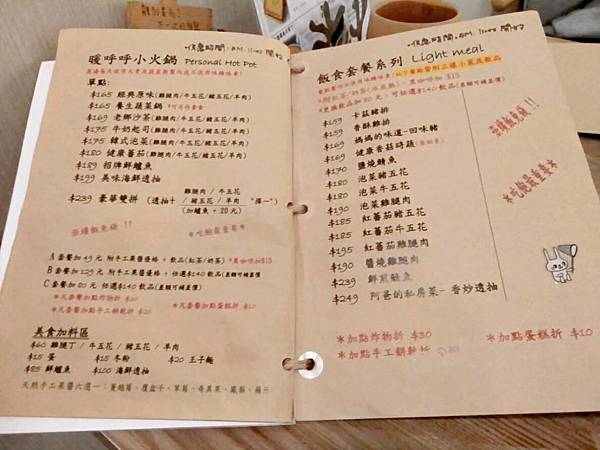 暖呼呼小火鍋 Personal Hot Pot
單點:
$165 經典原味(雞腿肉/牛五花/豬五花/羊肉)
$165 養生蔬菜鍋
$169 老饕沙茶(雞腿肉/牛五花/豬五花/羊肉)
$175 牛奶起司(雞腿肉/牛五花/豬五花/羊肉)
$175 韓式泡菜(雞腿肉/牛五花/豬五花/羊肉)
$180 健康蕃茄(雞腿肉/牛五花/豬五花/羊肉)
$189 招牌鮮鱸魚
$199 美味海鮮透抽
雞腿肉 / 牛五花
$239 豪華雙拼 (透抽+ / 豬五花 / 羊肉 "擇一")
(加鱸魚 + 20元)
A套餐加49元 附手工果醬優格 + 飲品(紅茶/奶茶) *黑咖啡加$15
B套餐加129元 附手工果醬優格 + 任選$140飲品(差額可補差價)
C套餐加80元 任選$140飲品(差額可補差價)
*凡套餐加點炸物折 $30
*凡套餐加點蛋糕折 $10
*凡套餐加點手工餅乾折 $20
美食加料區
$60 雞腿丁 / 牛五花 / 豬五花 / 羊肉
$15 蛋 $15 冬粉 $20 王子麵
$85 鮮鱸魚 $100 海鮮透抽
飯食套餐系列 Light meal
$159 卡茲豬排
$159 香酥雞排
$169 媽媽的味道-回味豬
$169 健康香菇時蔬
$170 鹽燒鯖魚
$180 泡菜豬五花
$180 泡菜牛五花
$190 泡菜雞腿肉
$185 紅蕃茄豬五花
$185 紅蕃茄牛五花
$195 紅蕃茄雞腿肉
$190 醬燒雞腿肉
$239 鮮煎鮭魚
$249 阿爸的私房菜- 香炒透抽
*加點炸物折 $30
*加點蛋糕折 $10
*加點手工餅乾折 $20